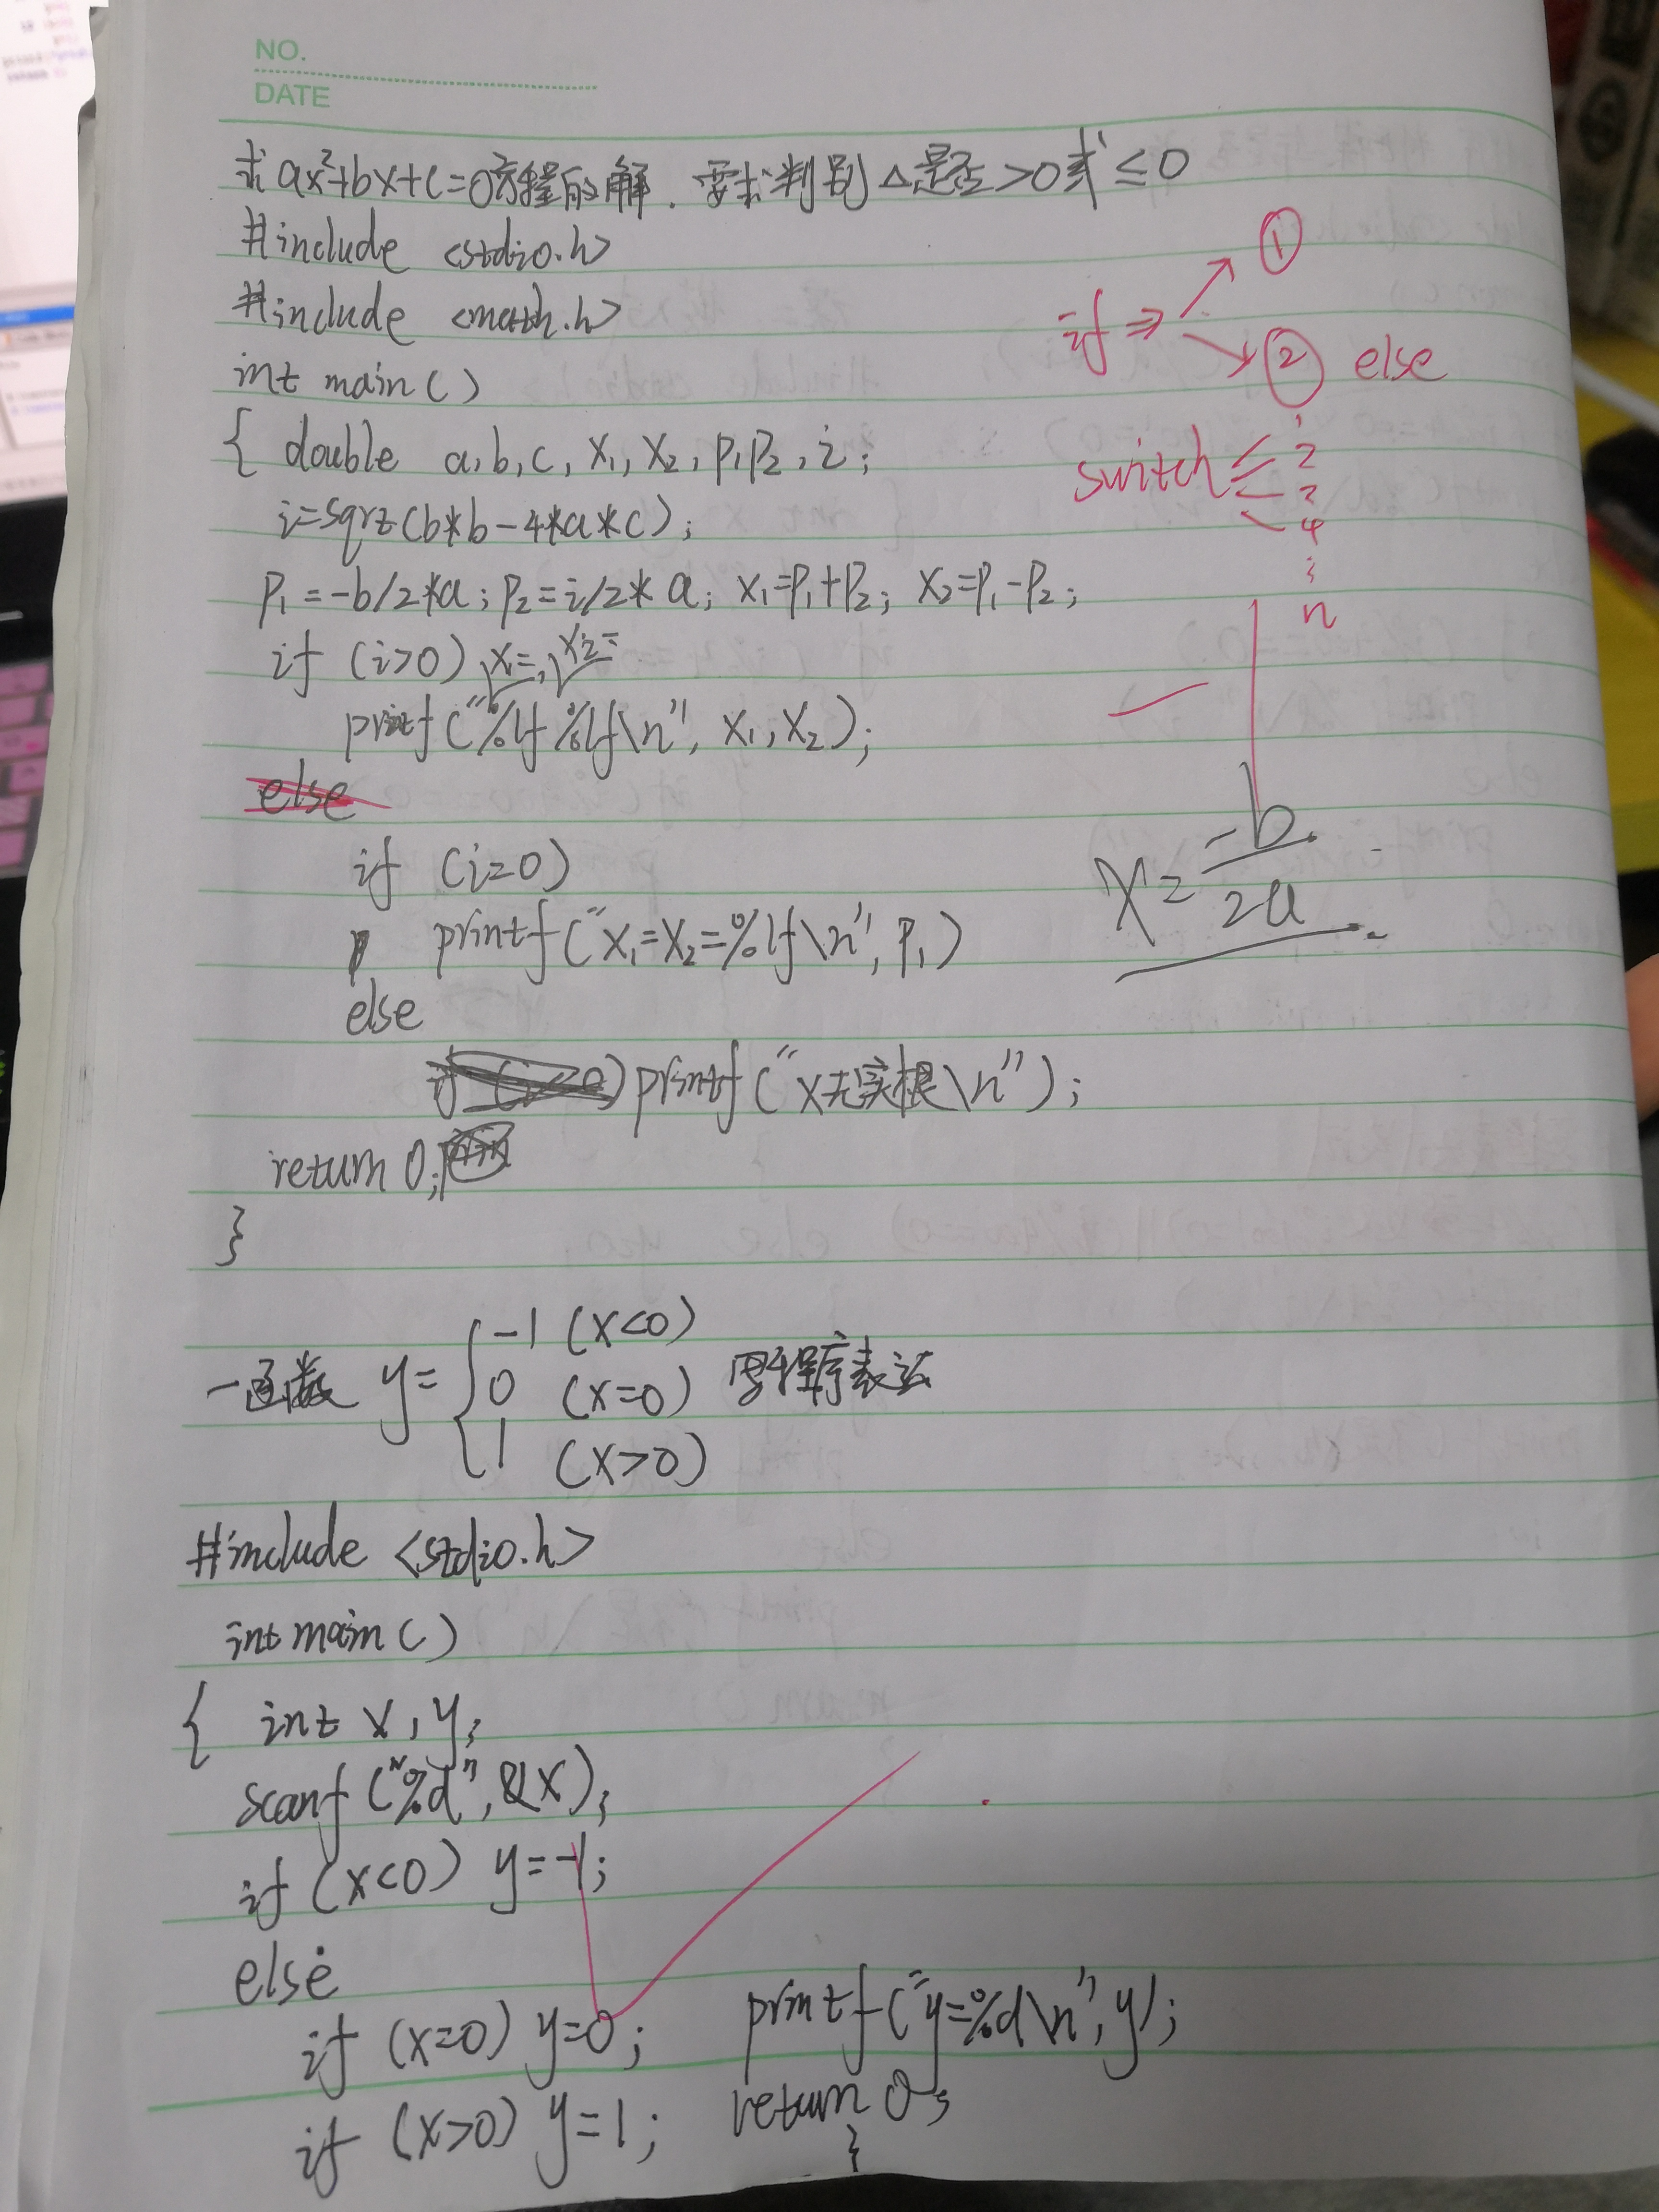 NO.
DATE
求ax²+bx+c=0方程的解.要求判别△是否>0或≤0
#include <stdio.h>
#include <math.h>
int main()
{ double a,b,c,x₁,x₂,p₁p₂,i;
i=sqrt(b*b-4*a*c);
p₁=-b/2*a;p₂=i/2*a;x₁=p₁+p₂;x₂=p₁-p₂;
if (i>0) x=,x₂=
printf("%lf%lf\n",x₁,x₂);
else
if (i=0)
printf("x₁=x₂=%lf\n",p₁)
else
printf("x无实根\n");
return 0;
}
if⇒
①
② else
switch
1
2
3
4
⋮
n
x=-b/2a
一函数 y={-1 (x<0)
0 (x=0) 写程序表达
1 (x>0)
#include <stdio.h>
int main()
{ int x,y;
scanf("%d",&x);
if (x<0) y=-1;
else
if (x=0) y=0;
if (x>0) y=1;
printf("y=%d\n",y);
return 0;
}